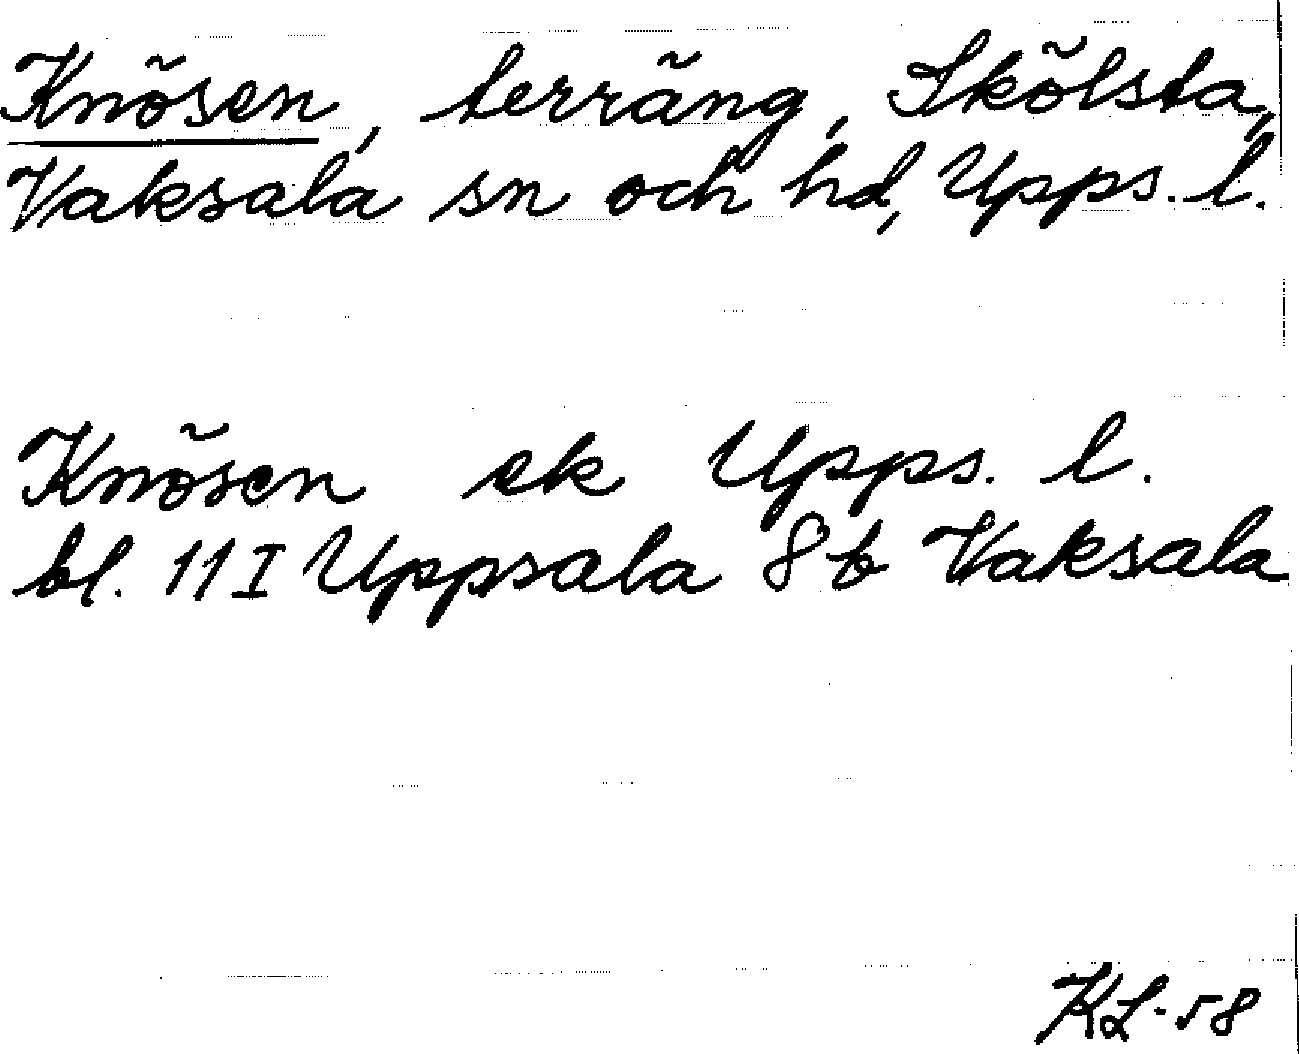 Knösen, terräng, Skölsta,
Vaksala sn och hd, Upps. l.
Knösen ek Upps. l.
bl. 11I Uppsala 8b Vaksala
KL-58